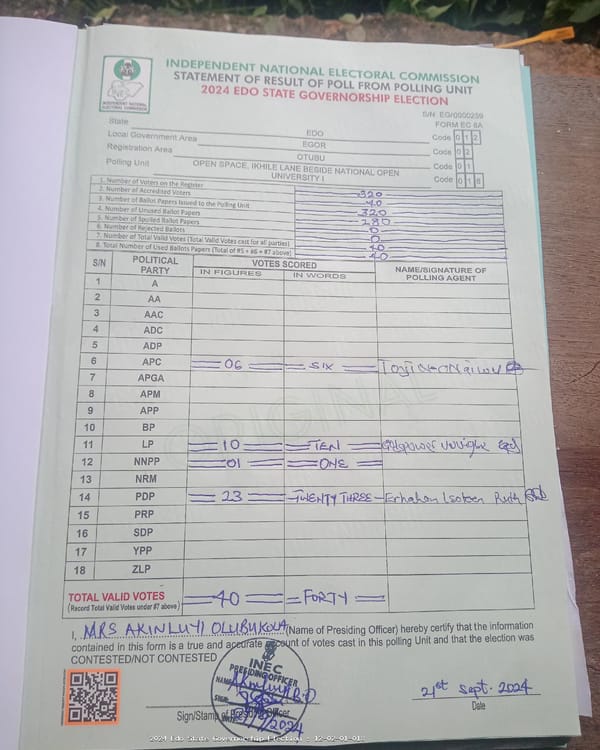 INDEPENDENT NATIONAL ELECTORAL COMMISSION
STATEMENT OF RESULT OF POLL FROM POLLING UNIT
2024 EDO STATE GOVERNORSHIP ELECTION
INDEPENDENT NATIONAL ELECTORAL COMMISSION
S/N EG/0000259
FORM EC 8A
State EDO Code 1 2
Local Government Area EGOR Code 0 2
Registration Area OTUBU Code 0 1
Polling Unit OPEN SPACE, IKHILE LANE BESIDE NATIONAL OPEN UNIVERSITY I Code 0 1 8
1. Number of Voters on the Register 320
2. Number of Accredited Voters 40
3. Number of Ballot Papers Issued to the Polling Unit 320
4. Number of Unused Ballot Papers 280
5. Number of Spoiled Ballot Papers 0
6. Number of Rejected Ballots 0
7. Number of Total Valid Votes (Total Valid Votes cast for all parties) 40
8. Total Number of Used Ballots Papers (Total of #5 + #6 + #7 above) 40
S/N POLITICAL PARTY VOTES SCORED NAME/SIGNATURE OF POLLING AGENT
IN FIGURES IN WORDS
1 A
2 AA
3 AAC
4 ADC
5 ADP
6 APC 06 SIX
7 APGA
8 APM
9 APP
10 BP
11 LP 10 TEN
12 NNPP 01 ONE
13 NRM
14 PDP 23 TWENTY THREE Erhahon Isoken Ruth
15 PRP
16 SDP
17 YPP
18 ZLP
ORIGINAL
TOTAL VALID VOTES 40 FORTY
(Record Total Valid Votes under #7 above)
I, MRS AKINLUYI OLUBUKOLA (Name of Presiding Officer) hereby certify that the information
contained in this form is a true and accurate account of votes cast in this polling Unit and that the election was
CONTESTED/NOT CONTESTED
INEC
PRESIDING OFFICER
NAME: Akinluyi B.O
SIGN:
2024
21st Sept. 2024
Sign/Stamp of Presiding Officer Date
2024 Edo State Governorship Election - 12-02-01-018